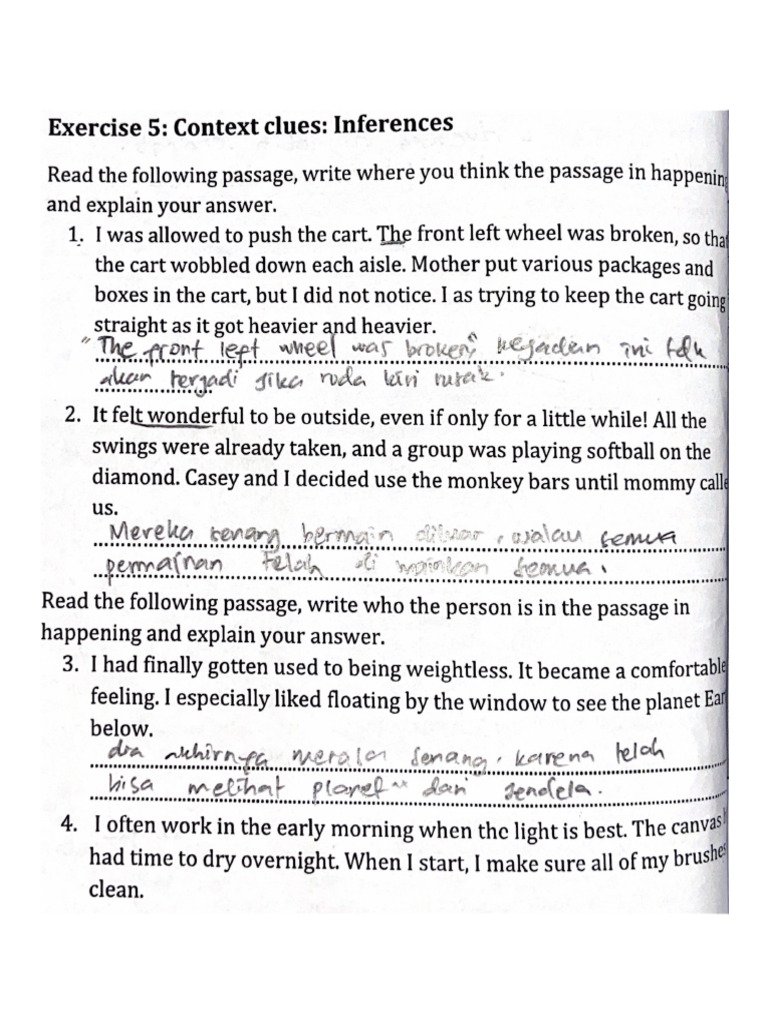 Exercise 5: Context clues: Inferences
Read the following passage, write where you think the passage in happening
and explain your answer.
1. I was allowed to push the cart. The front left wheel was broken, so that
the cart wobbled down each aisle. Mother put various packages and
boxes in the cart, but I did not notice. I as trying to keep the cart going
straight as it got heavier and heavier.
"The front left wheel was broken", kejadian ini tdk
akan terjadi jika roda kiri rusak.
2. It felt wonderful to be outside, even if only for a little while! All the
swings were already taken, and a group was playing softball on the
diamond. Casey and I decided use the monkey bars until mommy calle
us.
Mereka senang bermain diluar, walau semua
permainan telah di mainkan semua.
Read the following passage, write who the person is in the passage in
happening and explain your answer.
3. I had finally gotten used to being weightless. It became a comfortable
feeling. I especially liked floating by the window to see the planet Ear
below.
dia akhirnya merasa senang, karena telah
bisa melihat planet" dari jendela.
4. I often work in the early morning when the light is best. The canvas
had time to dry overnight. When I start, I make sure all of my brushe
clean.